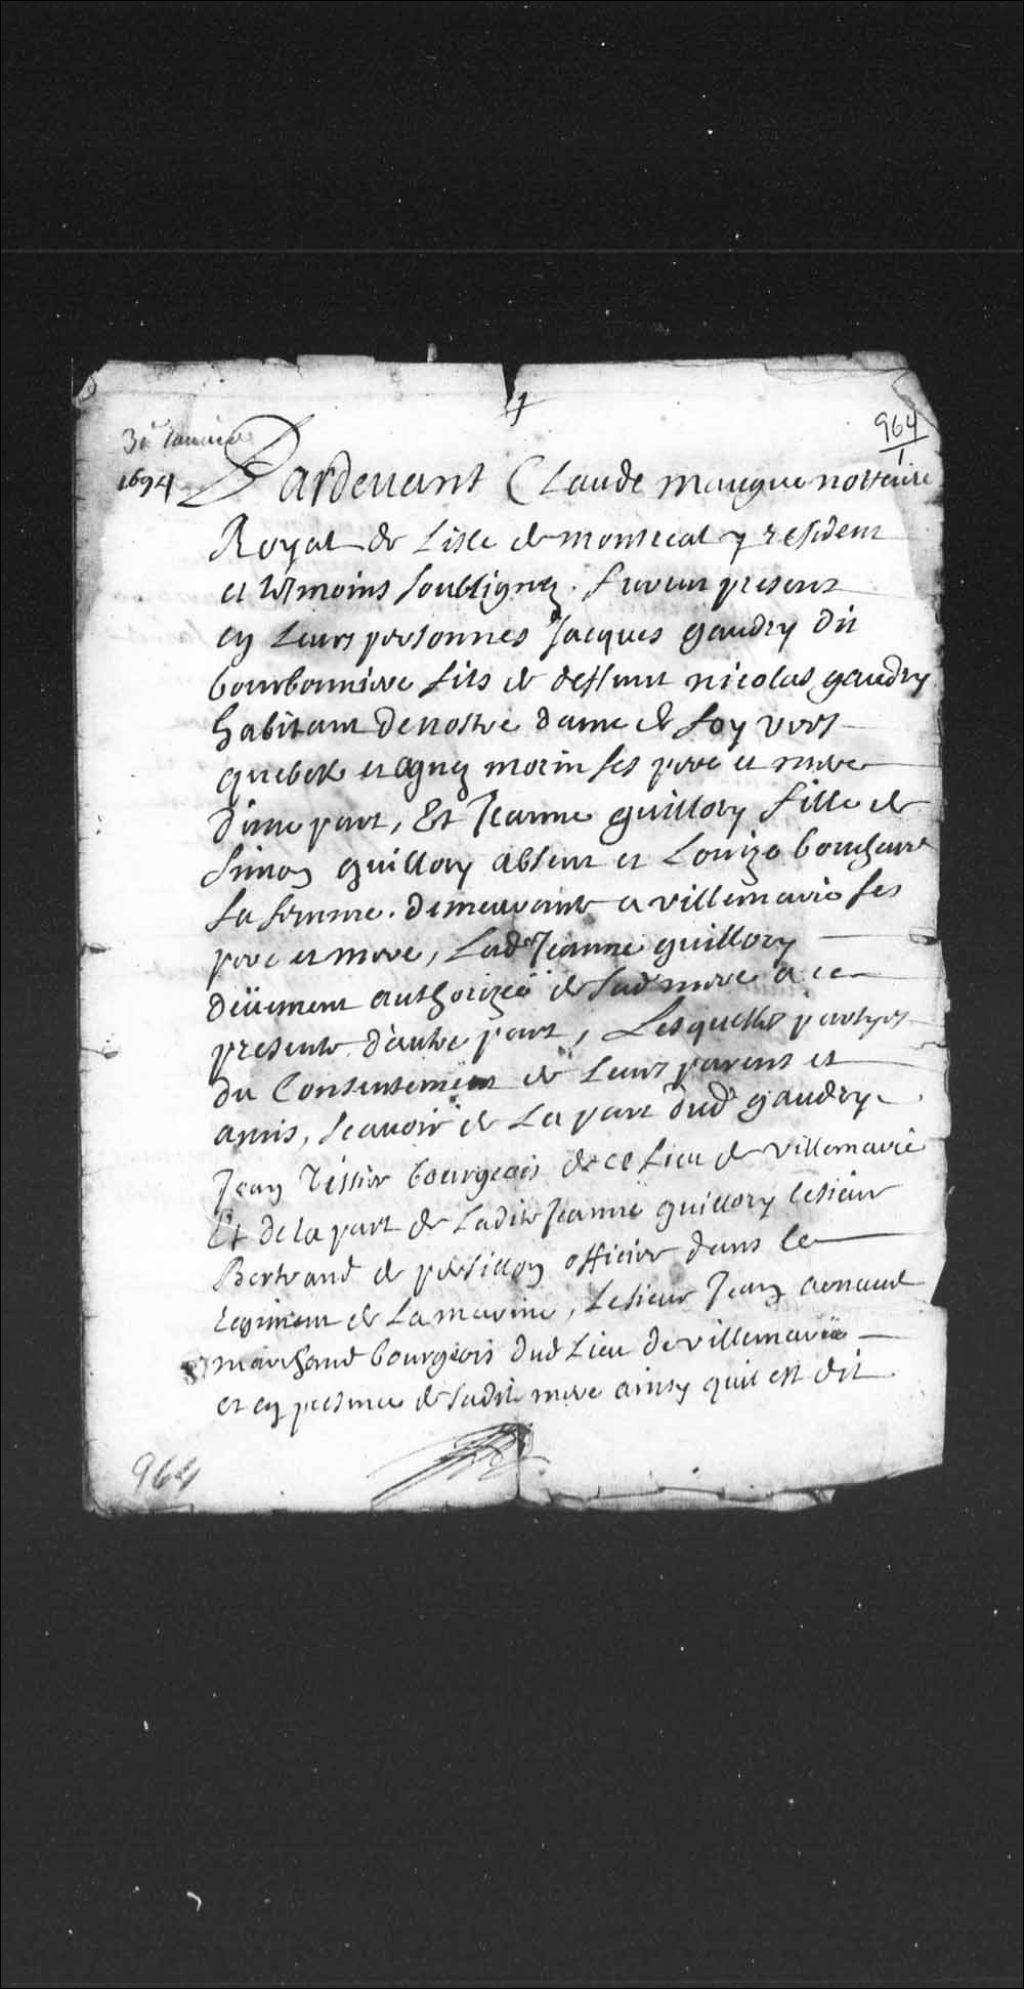 964
1
31e Janvier
1694
Pardevant Claude maugue nottaire
Royal de Lisle de montreal y resident
et temoins soubsignez. furent present
en Leurs personnes Jacques gaudry dit
bourbonniere fils de deffunt nicolas gaudry
habitant de nostre dame de foy vers
quebek et agnez morin ses pere et mere
dune part, Et Jeanne guillory fille de
Simon guillory absent et Louize bouchart
sa femme. demeurante a villemarie ses
pere et mere, Lade Jeanne guillory
deüement authorizéé de sade mere a ce
presente d'autre part, Lesquelles partyes
du Consentement de Leurs parens et
amis, scavoir de La part dudt gaudry
Jean Tessier bourgeois de ce Lieu de villemarie
Et de la part de Ladite Jeanne guillory lesieur
Bertrand de officier dans le
Regiment de La marine, Lesieur Jean arnaud
marchand bourgeois dud Lieu de villemarie
et en presence de sadite mere ainsy quil est dit
964